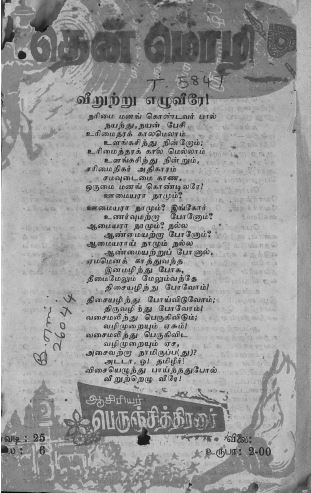 தென் மொழி
T. 5841
வீறுற்று எழுவீரே!
நரிமை மனங் கொண்டவர் பால்
நயந்து, நயன் பேசி
உரிமைதரக் காலமெலாம்
உளங்கசிந்து நின்றோம்;
உரிமைத்தரக் கால மெல்லாம்
உளங்கசிந்து நின்றும்,
சரிமைநிகர் அதிகாரம்
சமவுடைமை காண,
ஒருமை மனங் கொண்டிலரே!
ஊமையரா நாமும்?
ஊமையரா நாமும்? இங்கோர்
உணர்வுமற்றா போனோம்?
ஆமையரா நாமும்? நல்ல
ஆண்மையற்றா போனோம்?
ஆமையராய் நாமும் நல்ல
ஆண்மையற்றுப் போனால்,
ஏமமெனக் காத்துவந்த
இனமழிந்து போக,
தீமைமேலும் மேலும்வந்தே
திசையழிந்து போவோம்!
திசையழிந்து போய்விடுவோம்;
திருவழிந்து போவோம்!
வசைமலிந்து பெருகிவிடும்;
வழிமுறையும் ஏசும்!
வசைமலிந்து பெருகிவிட,
வழிமுறையும் ஏச,
அசைவற்றா நாமிருப்ப(து)?
அடடா, ஓ! தமிழர்!
விசையெழுந்து பாய்ந்ததுபோல்
வீறுற்றெழு வீரே!
26044
ஆசிரியர்
பெருஞ்சித்திரனார்
வடி : 25
விலை:
6
உருபா: 2-00